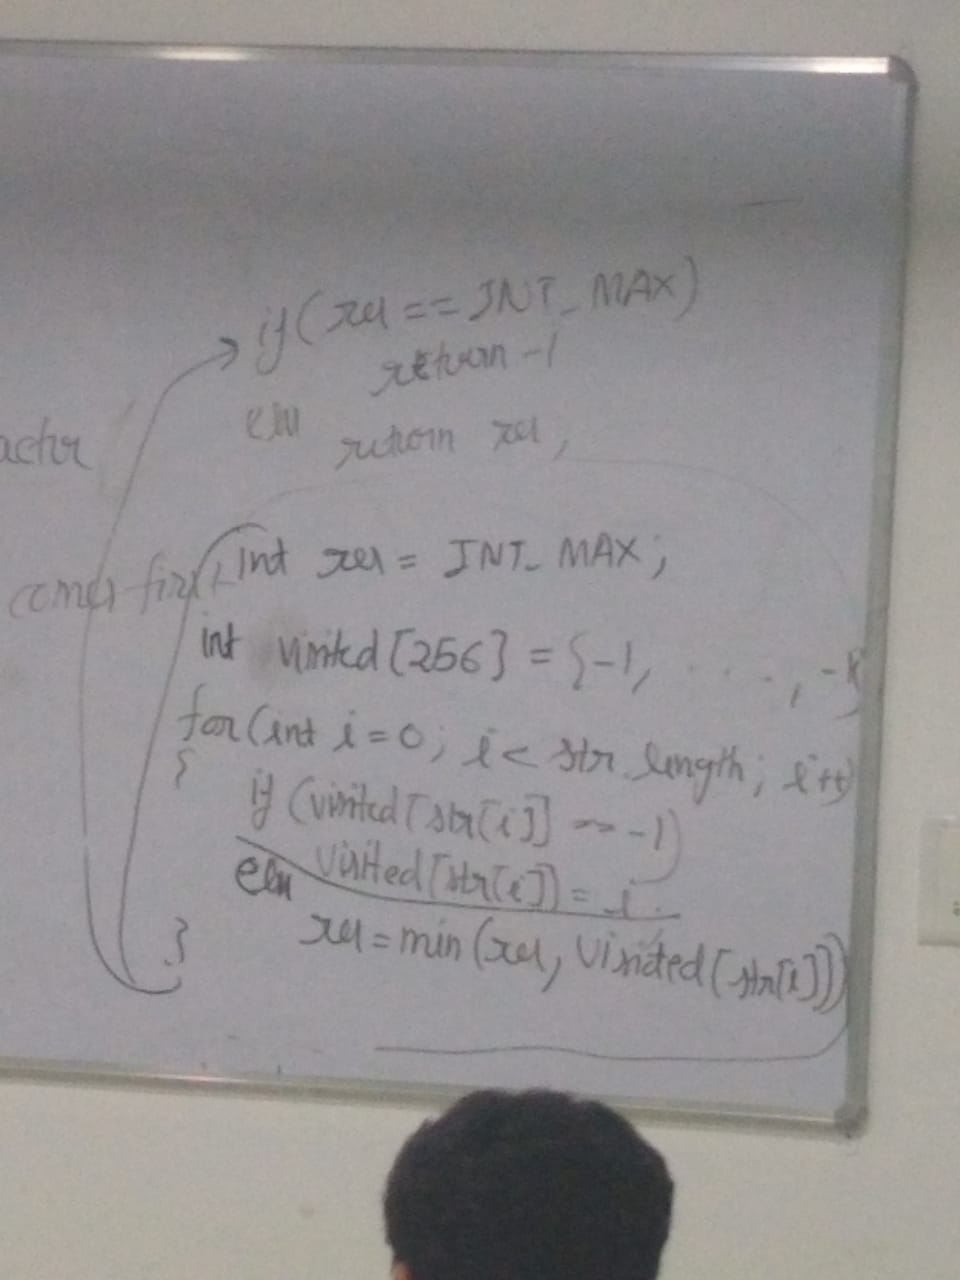 if (res == INT_MAX)
return -1
else
return res;
acter
int res = INT_MAX;
comes first
int visited [256] = {-1, . . . . , -1}
for (int i = 0; i < str.length; i++)
{
if (visited [str[i]] == -1)
visited [str[i]] = i
else
res = min (res, visited [str[i]])
}